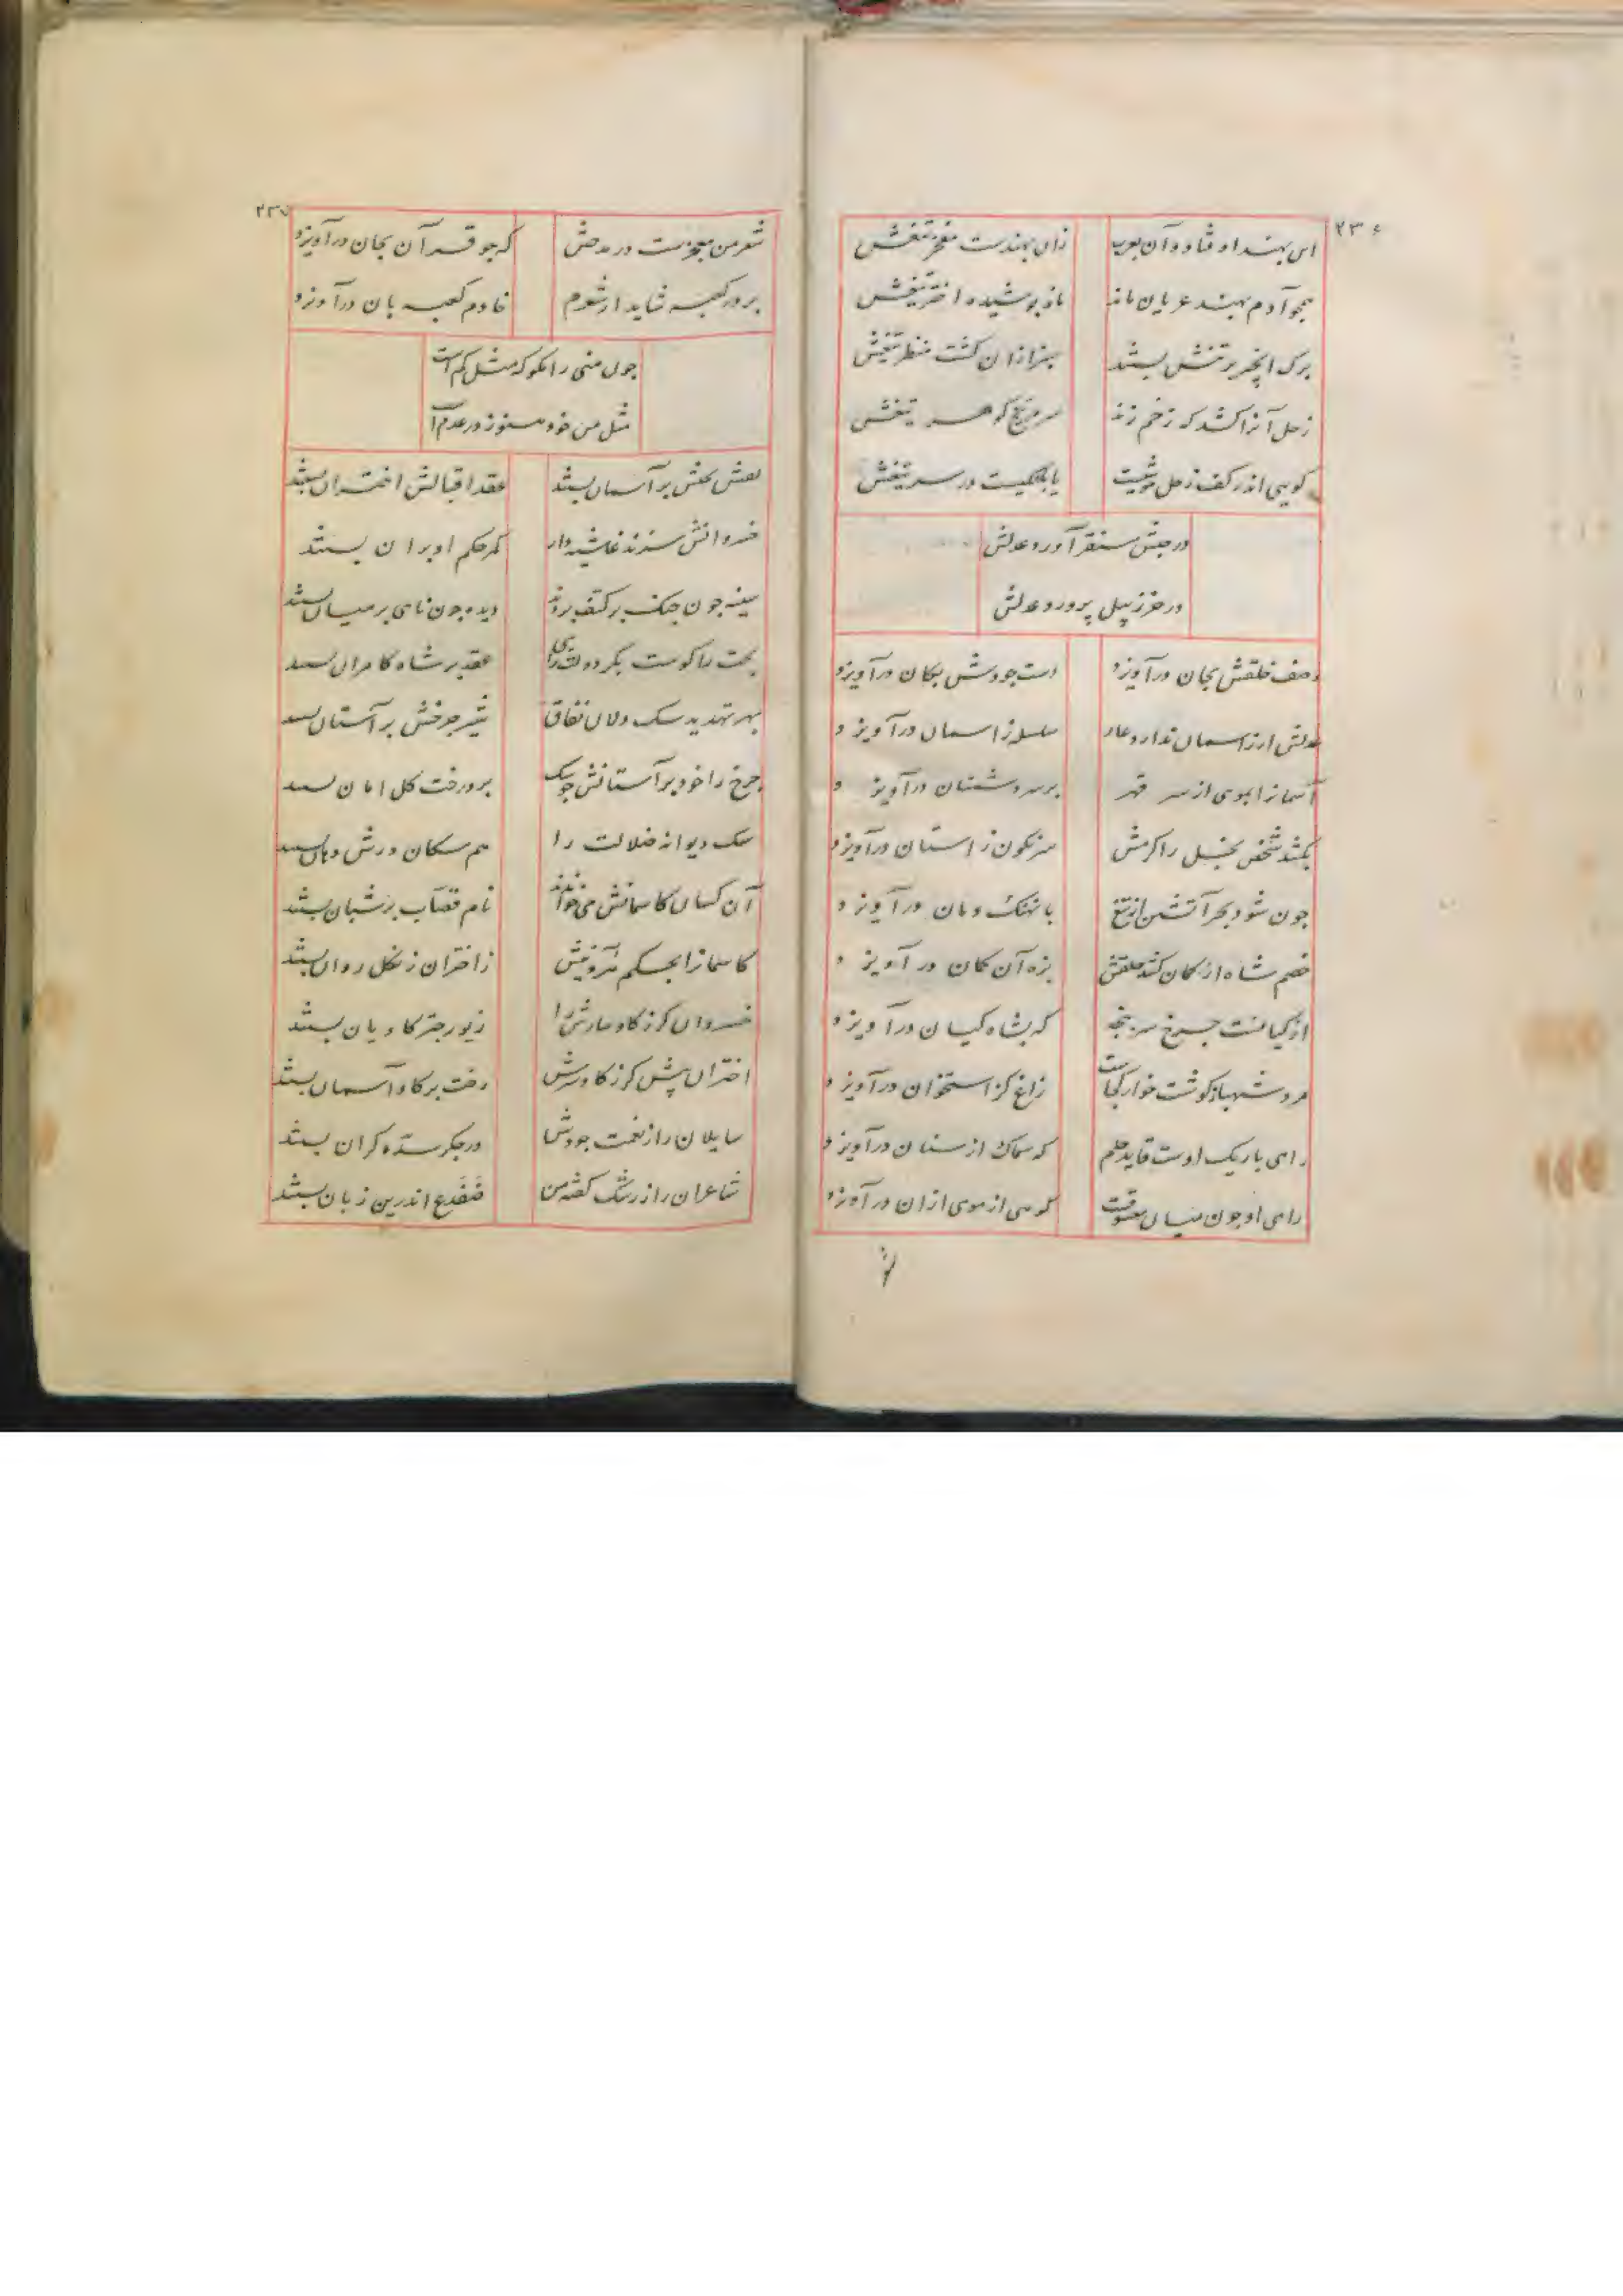 ۲۳۶
این بهند اوفتاد وآن بعرب زان بهندست مفخر تیغش
همچو آدم بهند عریان ماند ناف پوشیده اختر تیغش
برک انجیر بر تنش بستند سبز ازان کشت منظر تیغش
زحل آنرا کشد که زخم زند سر مریخ کوهر تیغش
کویی اندر کف زحل در سر تیغش
در حبش سنقر آورد عدلش
در خزر پیل پرورد عدلش
وصف خلقش بجان درآویزد دست جودش بکان درآویزد
عدلش ار ز آسمان ندارد عار سلسله ز آسمان درآویزد
آسمانرا بموی از سر قهر بر سر دشمنان درآویزد
بکشد شخص بخل را کرمش سرنکون ز آستان درآویزد
چون شود بحر آتشین از تیغ با نهنک دمان درآویزد
خصم شاه ار کمان کشد حلقش بزه آن کمان درآویزد
از کیانست چرخ سرپنجه که بشاه کیان درآویزد
مرد شهباز کوشت خوار کجاست زاغ کز استخوان درآویزد
رای باریک اوست قاید حلم که سماک از سنان درآویزد
رای او چون میان معشوقست کوهی از موی ازان درآویزد
۲۳۷
شعر من معجزست در مدحش که چو قرآن بجان درآویزد
بر در کعبه شاید ار شعرم خادم کعبه بان درآویزد
چون منی را مکو که مثل کم است
مثل من خود هنوز در عدم است
نعش بختش بر آسمان بستند عقد اقبالش اختران بستند
خسروانش سزند غاشیه دار کمر حکم او بران بستند
سینه چون چنک بر کتف بردند دیده چون نای بر میان بستند
بخت را کوست بکر دولت زای عقد بر شاه کامران بستند
بهر تهدید سک دلان نفاق شیر چرخش بر آستان بستند
چرخ را خود بر آستانش چو سک بر درخت کل امان بستند
سک دیوانه ضلالت را هم سکان درش دهان بستند
آن کسان کاسمانش می خوانند نام قصاب بر شبان بستند
کاسمانرا بحکم هرویش ز اختران زنکل روان بستند
خسروان کرز کاو سارش را زیور چتر کاویان بستند
اختران پیش کرز کاو سرش رخت بر کاو آسمان بستند
سایلان را ز نعمت جودش در جکر سده کران بستند
شاعران را ز رشک کفته من ضفدع اندر بن زبان بستند